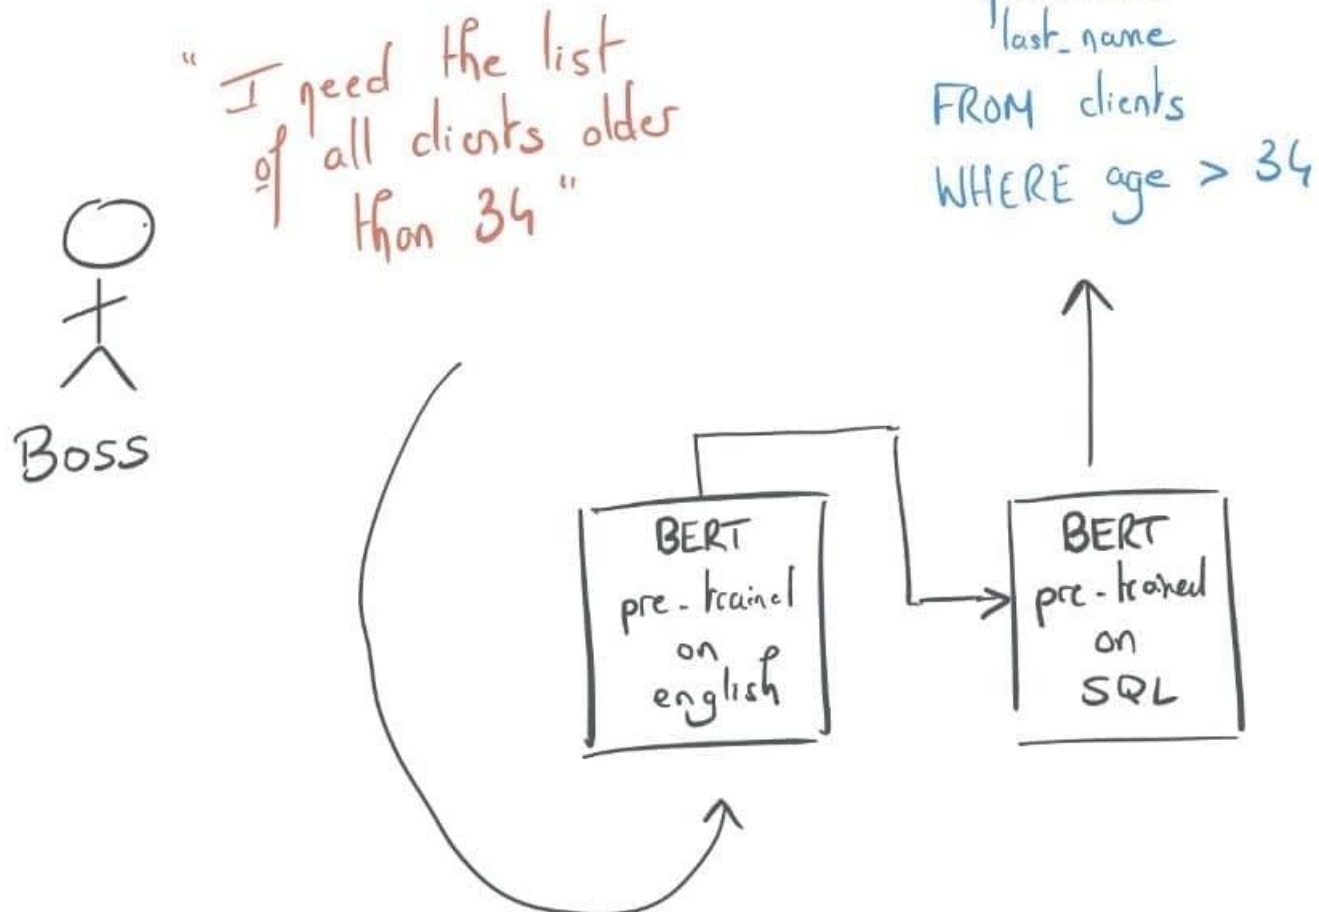 " I need the list
of all clients older
than 34 "
last_name
FROM clients
WHERE age > 34
Boss
BERT
pre-trained
on
english
BERT
pre-trained
on
SQL